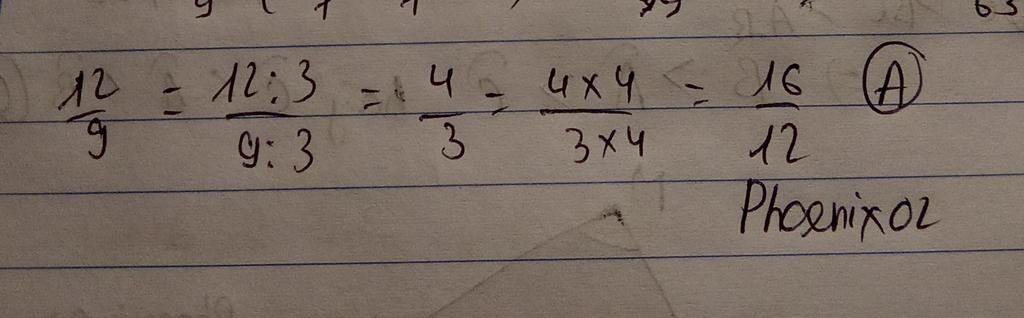 12/9 = 12:3/9:3 = 4/3 = 4x4/3x4 = 16/12 A
Phoenix02